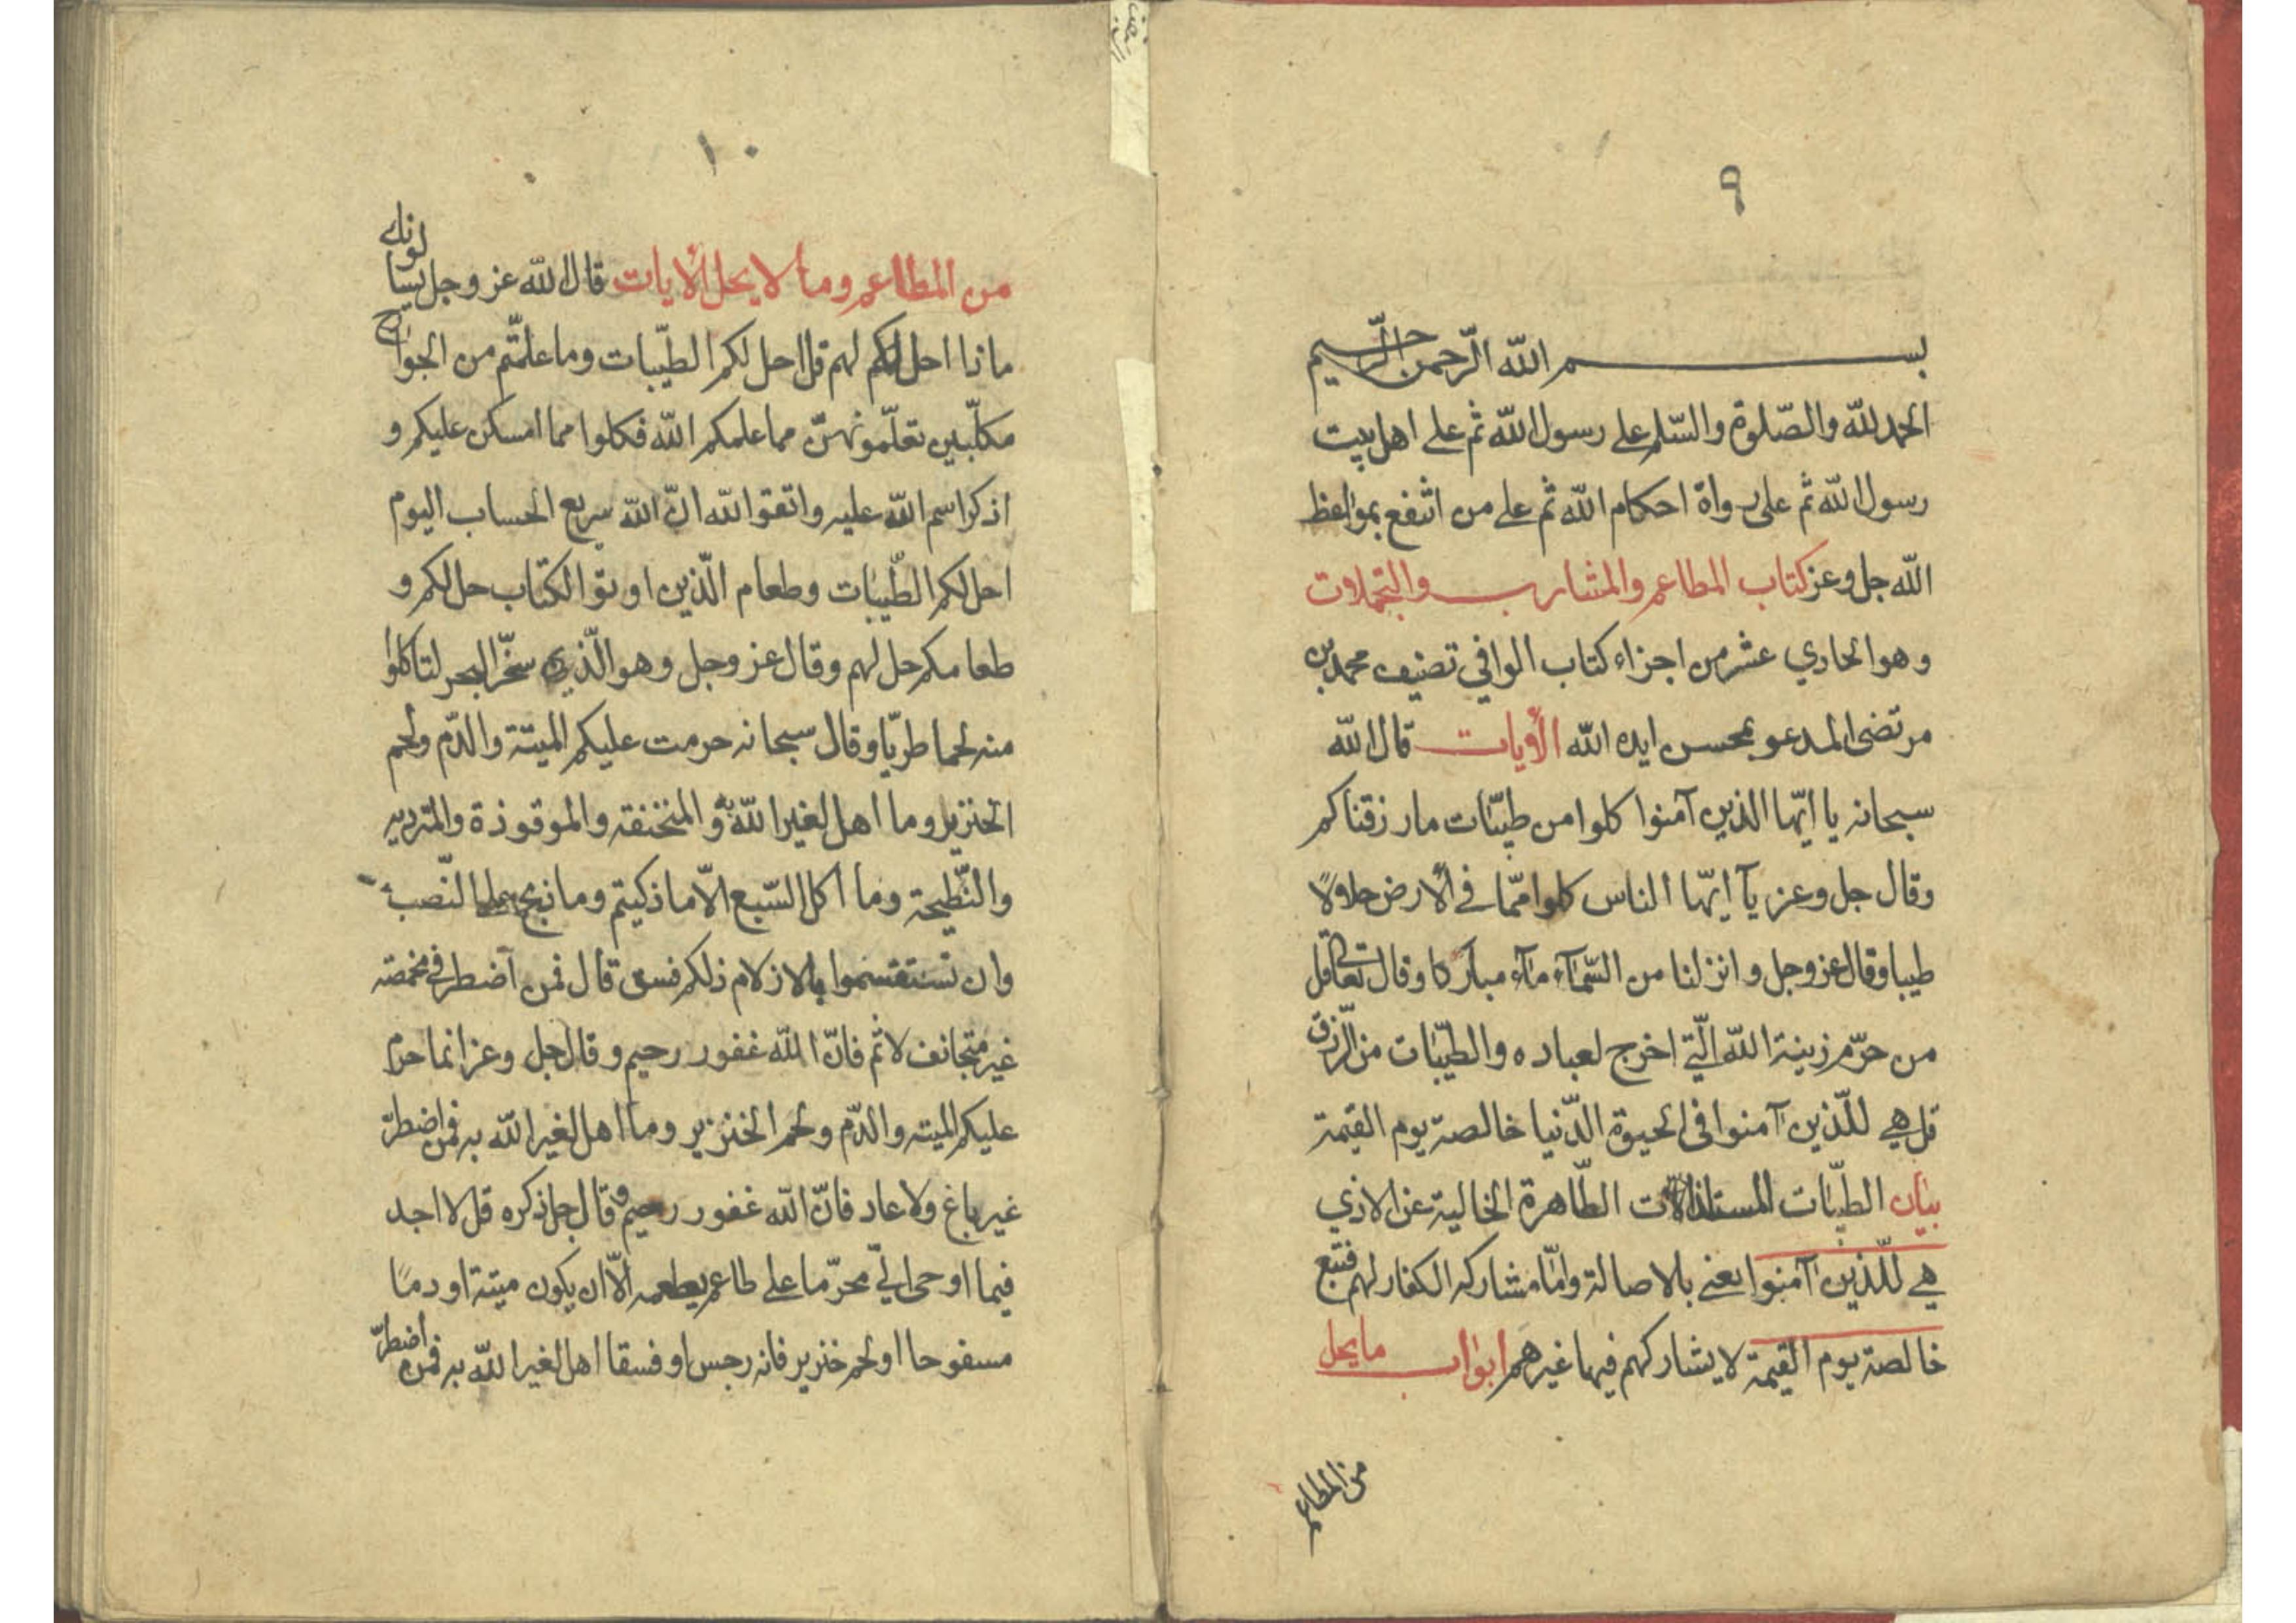 ٩
بسم الله الرّحمن الرّحيم
الحمد لله والصّلوة والسّلم على رسول الله ثم على اهل بيت
رسول الله ثم على رواة احكام الله ثم على من انتفع بمواعظ
الله جل وعز كتاب المطاعم والمشارب والتجملات
وهو الحادي عشر من اجزاء كتاب الوافي تصنيف محمد بن
مرتضى المدعو بمحسن ايده الله الأيات قال الله
سبحانه يا ايّها الذين آمنوا كلوا من طيّبات ما رزقناكم
وقال جل وعز يآ ايّها الناس كلوا ممّا في الأرض حلاولًا
طيبا وقال عز وجل و انزلنا من السّمآء مآء مباركا وقال تعالى قل
من حرّم زينة الله الّتي اخرج لعباده والطيّبات من الرّزق
قل هي للّذين آمنوا في الحيوة الدّنيا خالصة يوم القيمة
بيان الطيّبات المستلذات الطّاهرة الخالية عن الاذي
هي للّذين آمنوا يعني بالاصالة وامّا مشاركه الكفار لهم فتبع
خالصة يوم القيمة لا يشاركهم فيها غيرهم ابواب ما يحل
من المطاعم
١٠
من المطاعم وما لا يحل الأيات قال الله عز وجل يسالونك
ماذا احل لهم قل احل لكم الطيّبات وما علمّتم من الجوارح
مكلّبين تعلّمونهنّ مما علمكم الله فكلوا مما امسكن عليكم و
اذكرا سم الله عليه واتقوا الله انّ الله سريع الحساب اليوم
احل لكم الطّيبات وطعام الّذين اوتوا الكتاب حل لكم و
طعامكم حل لهم وقال عز وجل وهو الّذي سخّر البحر لتاكلوا
منه لحما طريّا وقال سبحانه حرمت عليكم الميتة والدّم ولحم
الخنزير وما اهل لغير الله به والمنخنقه والموقوذة والمترديه
والنّطيحة وما اكل السّبع الّا ما ذكيتم وما ذبح على النّصب
وان تستقسموا بالازلام ذلكم فسق قال فمن اضطر في مخمصه
غير متجانف لاثم فانّ الله غفور رحيم و قال جل وعز انما حرم
عليكم الميته والدّم ولحم الخنزير وما اهل لغير الله به فمن اضطرّ
غير باغ ولا عاد فانّ الله غفور رحيم و قال جل ذكره قل لا اجد
فيما اوحى اليّ محرّما على طاعم يطعمه الّا ان يكون ميتة او دمًا
مسفوحا او لحم خنزير فانه رجس او فسقا اهل لغير الله به فمن اضطرّ